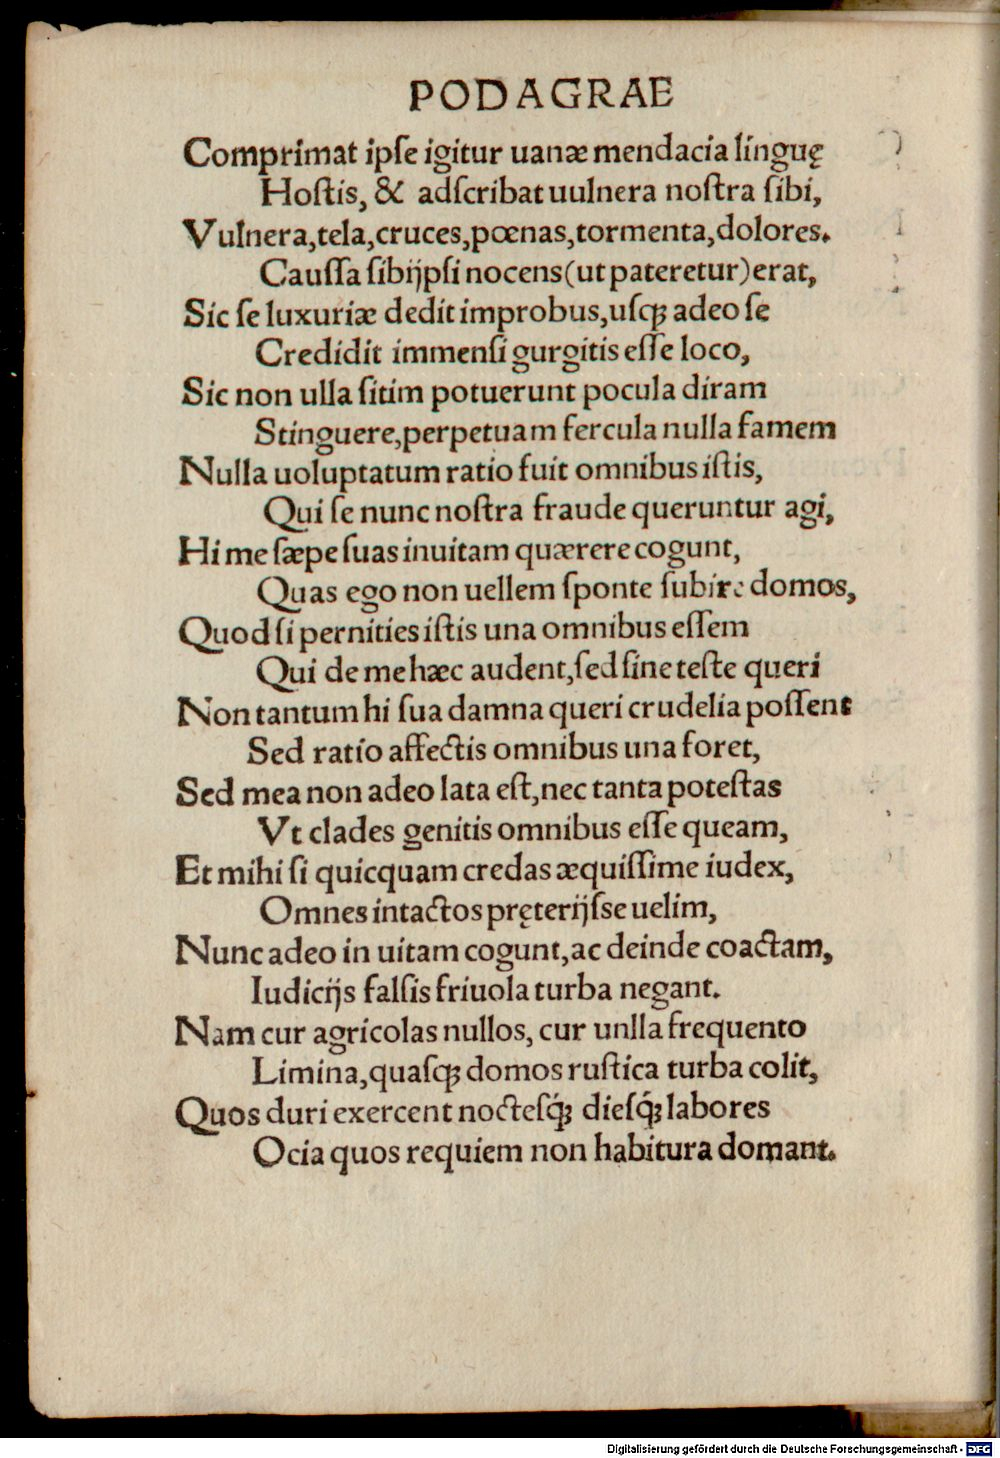 PODAGRAE
Comprimat ipſe igitur uanæ mendacia linguę
Hoſtis, & adſcribat uulnera noſtra ſibi,
Vulnera,tela,cruces,pœnas,tormenta,dolores.
Cauſſa ſibijpſi nocens(ut pateretur)erat,
Sic ſe luxuriæ dedit improbus,uſqꝫ adeo ſe
Credidit immenſi gurgitis eſſe loco,
Sic non ulla ſitim potuerunt pocula diram
Stinguere,perpetuam fercula nulla famem
Nulla uoluptatum ratio fuit omnibus iſtis,
Qui ſe nunc noſtra fraude queruntur agi,
Hi me ſæpe ſuas inuitam quærere cogunt,
Quas ego non uellem ſponte ſubire domos,
Quod ſi pernities iſtis una omnibus eſſem
Qui de me hæc audent,ſed ſine teſte queri
Non tantum hi ſua damna queri crudelia poſſent
Sed ratio affectis omnibus una foret,
Sed mea non adeo lata eſt,nec tanta poteſtas
Vt clades genitis omnibus eſſe queam,
Et mihi ſi quicquam credas æquiſſime iudex,
Omnes intactos pręterijſse uelim,
Nunc adeo in uitam cogunt,ac deinde coactam,
Iudicijs falſis friuola turba negant.
Nam cur agricolas nullos, cur unlla frequento
Limina,quaſqꝫ domos ruſtica turba colit,
Quos duri exercent nocteſq́ꝫ dieſq́ꝫ labores
Ocia quos requiem non habitura domant.
Digitalisierung gefördert durch die Deutsche Forschungsgemeinschaft - DFG